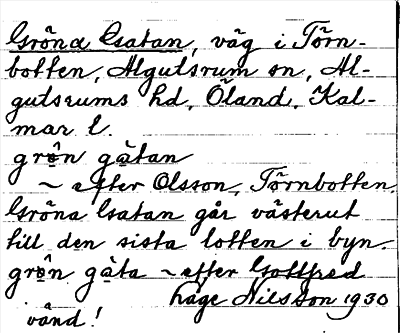 Gröna Gatan, väg i Törn-
botten, Algutsrum sn, Al-
gutsrums hd, Öland, Kal-
mar l.
grö̀n gàtan
~ efter Olsson, Törnbotten.
Gröna Gatan går västerut
till den sista lotten i byn.
grö̀n gàta ~ efter Gottfred
Håge Nilsson 1930
vänd!